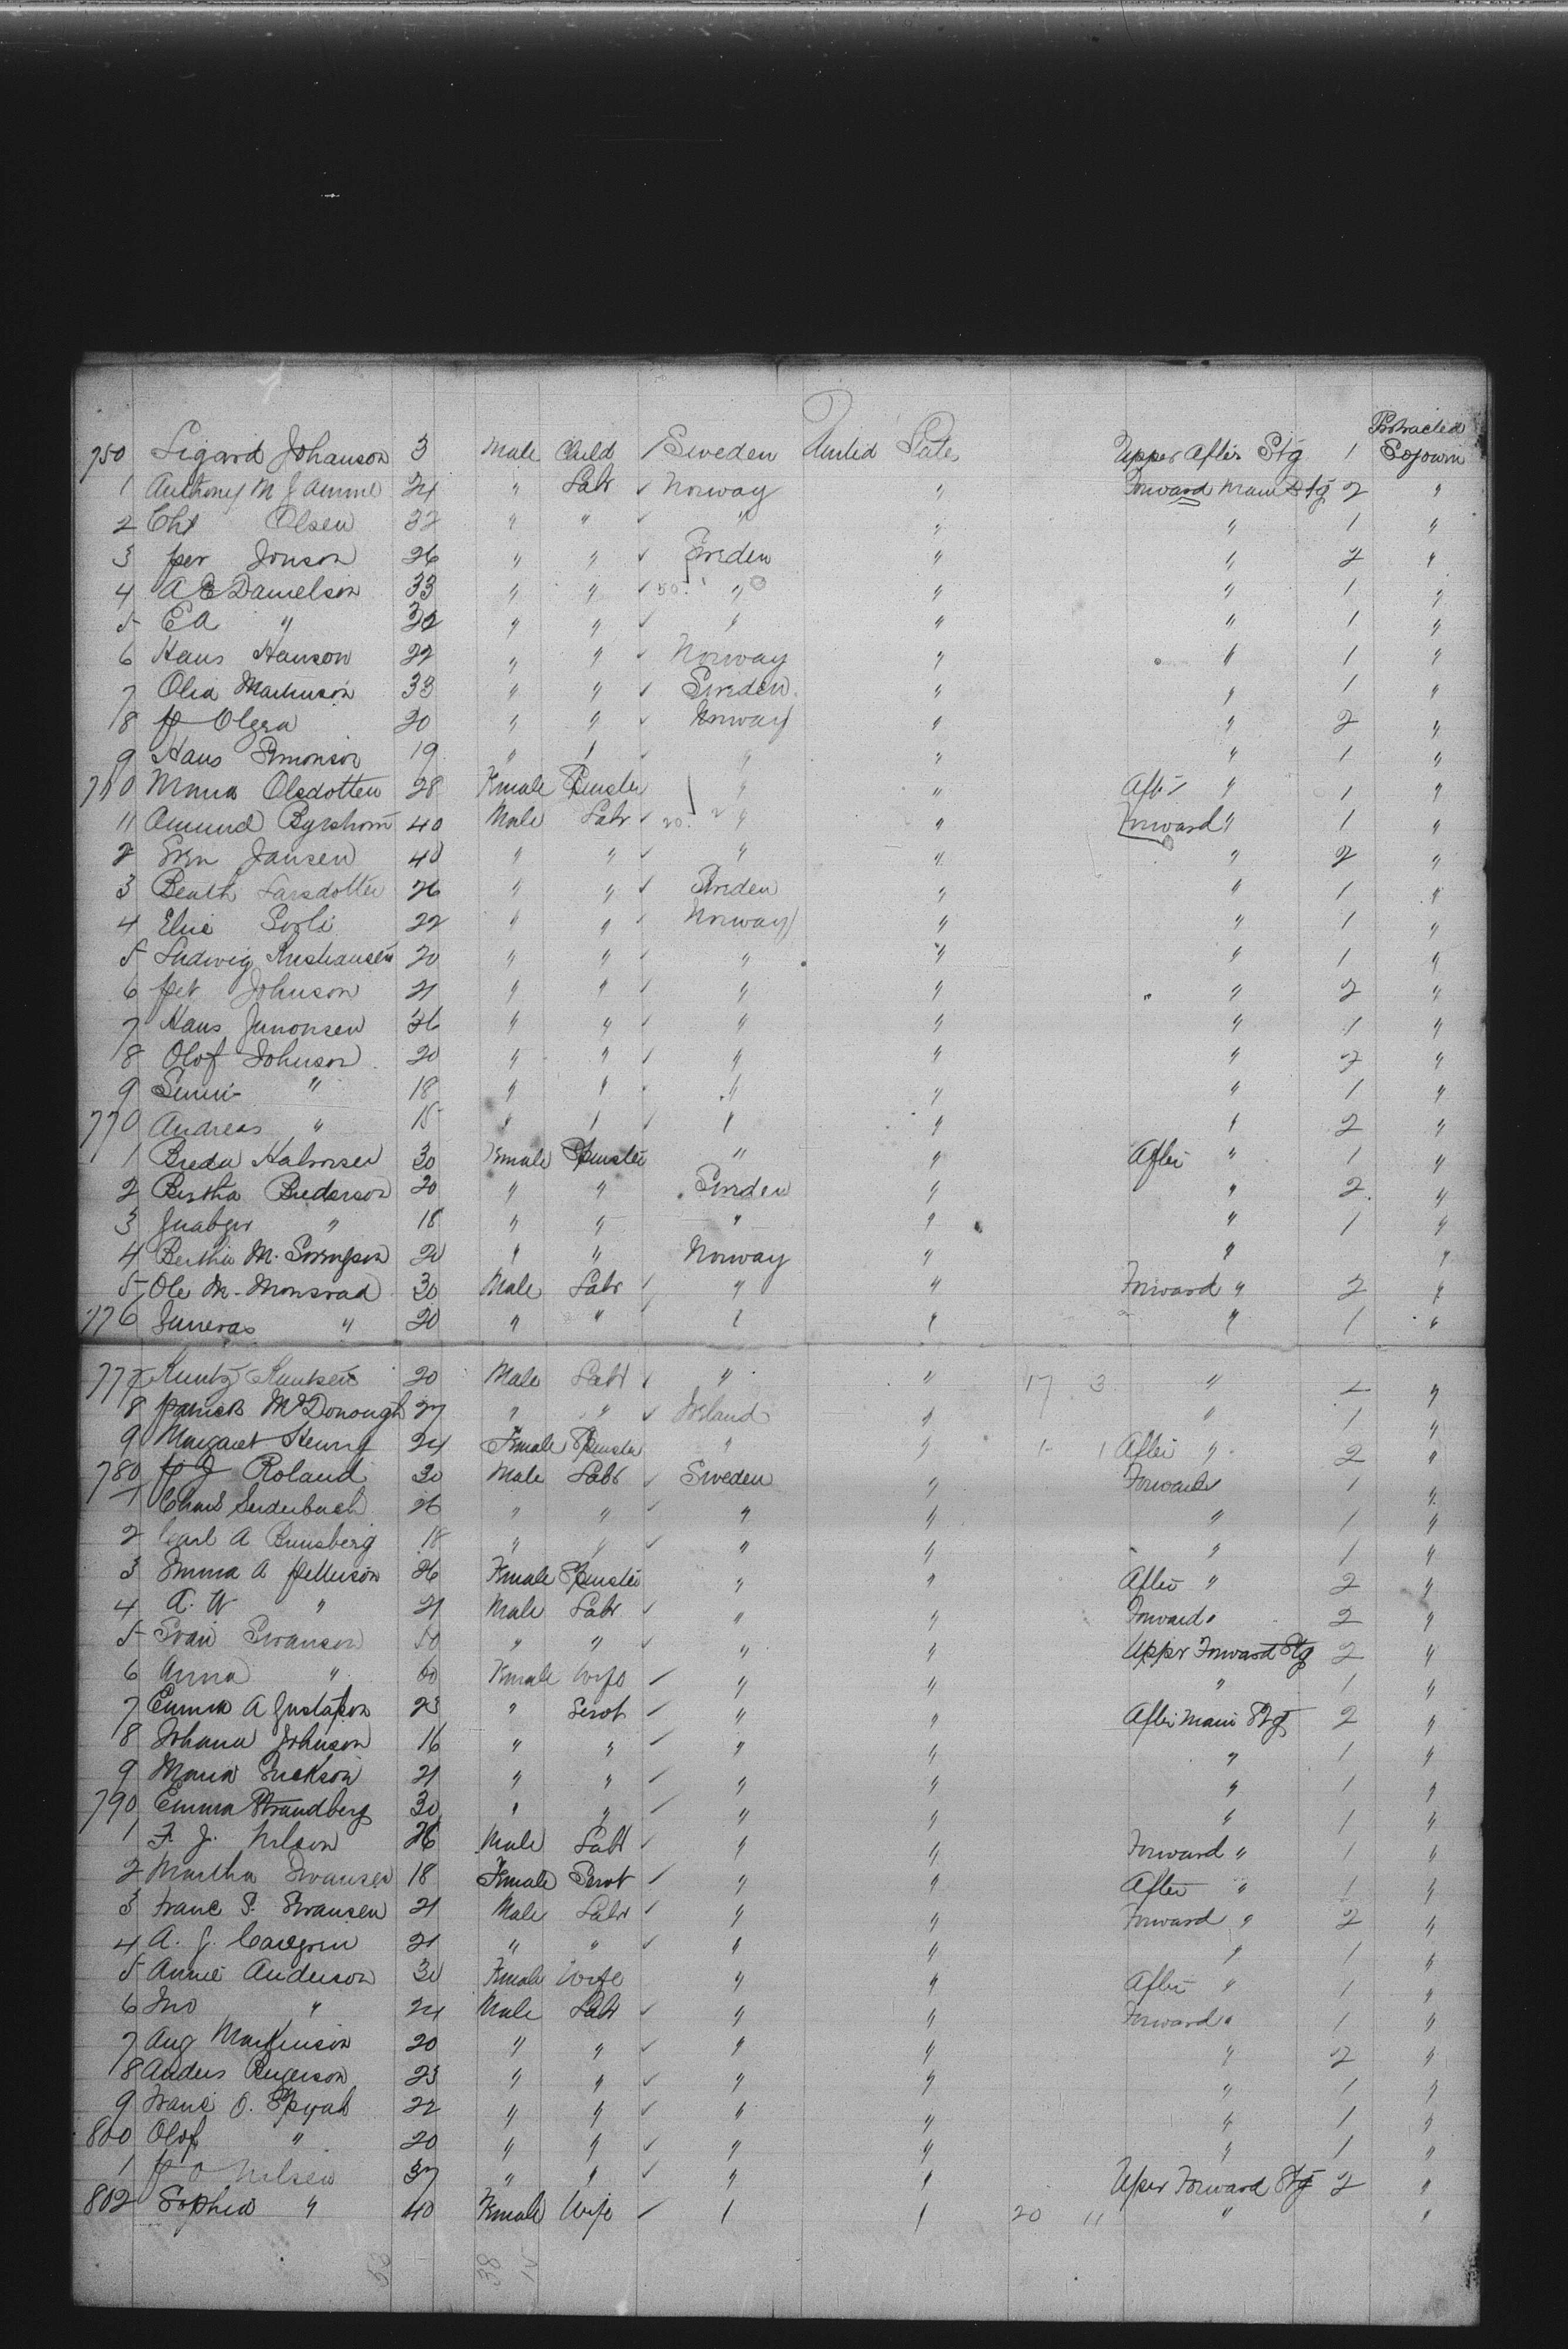 Protracted
750 Sigard Johanson 3 Male Child / Sweden United States Upper After Stg 1 Sojourn
1 Anthony M J 24 " Labr ✓ Norway " Forward Main Stg 2 "
2 Chs Olsen 32 " " ✓ " " " 1 "
3 per Jonson 26 " " ✓ Sweden " " 2 "
4 A E Danielson 33 " " ✓ 50 " " " 1 "
5 E A " 32 " " ✓ " " " 1 "
6 Hans Hanson 22 " " ✓ Norway " " 1 "
7 Olia 33 " " ✓ Sweden " " 1 "
8 p Olgra 20 " " ✓ Norway " " 2 "
9 Hans Simonson 19 " " ✓ " " " 1 "
760 Maria Olsdotten 28 Female Spinster " " After " 1 "
11 Amund 40 Male Labr ✓ 20 " " Forward " 1 "
2 Sven Jansen 40 " " ✓ " " " 2 "
3 Beath Larsdotter 26 " " ✓ Sweden " " 1 "
4 Elric 22 " " ✓ Norway " " 1 "
5 Ludwig Kristiansen 20 " " ✓ " " " 1 "
6 pet Johnson 21 " " ✓ " " " 2 "
7 Hans 36 " " ✓ " " " 1 "
8 Olof Johnson 20 " " ✓ " " " 2 "
9 " 18 " " ✓ " " " 1 "
770 Andreas " 15 " " ✓ " " " 2 "
1 Breda Halvorsen 30 Female Spinster " " After " 1 "
2 Bertha Pederson 20 " " Sweden " " 2 "
3 " 18 " " " " " 1 "
4 Bertha M. 20 " " Norway " " "
5 Ole M. Monsrad 30 Male Labr ✓ " " Forward " 2 "
776 " 20 " " ✓ " " " 1 "
777 Kuntz Knutsen 20 Male Labr ✓ " " 17 3 " 2 "
8 Patrick McDonough 27 " " ✓ Ireland " " 1 "
9 Margaret Henry 24 Female Spinster " " 1 1 After " 2 "
780 p J Roland 30 Male Labr ✓ Sweden " Forward " 1 "
1 Chars 26 " " ✓ " " " 1 "
2 Carl A Brunsberg 18 " " ✓ " " " 1 "
3 Emma A Petterson 26 Female Spinster " " After " 2 "
4 A. W " 21 Male Labr ✓ " " Forward " 2 "
5 Svan Swanson 50 " " ✓ " " Upper Forward Stg 2 "
6 Anna " 60 Female Wife ✓ " " " 1 "
7 Emma A Gustafson 23 " Servt ✓ " " After Main Stg 2 "
8 Johana Johnson 16 " " ✓ " " " 1 "
9 Maria Erickson 21 " " ✓ " " " 1 "
790 Emma Strandberg 30 " " ✓ " " " 1 "
1 F. J. Nilson 26 Male Labr ✓ " " Forward " 1 "
2 Martha Swansen 18 Female Servt ✓ " " After " 1 "
3 Franc S. Swansen 21 Male Labr ✓ " " Forward " 2 "
4 A. J. Carlgren 21 " " ✓ " " " 1 "
5 Annie Anderson 30 Female Wife " " After " 1 "
6 Jno " 24 Male Labr ✓ " " Forward " 1 "
7 Aug Markusson 20 " " ✓ " " " 2 "
8 Anders 23 " " ✓ " " " 1 "
9 Franc O. 22 " " ✓ " " " 1 "
800 Olof " 20 " " ✓ " " " 1 "
1 p O Nilsen 37 " " ✓ " " Upper Forward Stg 2 "
802 Sophia " 40 Female Wife ✓ " " 20 11 " "
53 38 15